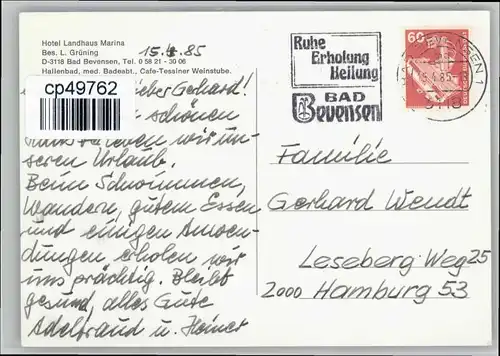 Hotel Landhaus Marina
Bes. L. Grüning
D-3118 Bad Bevensen, Tel. 0 58 21 - 30 06
Hallenbad, med. Badeabt., Cafe-Tessiner Weinstube.
15.4.85
cp49762
lieber Gerhard!
schönen
wir un-
seren Urlaub.
Beim Schwimmen,
Wandern, gutem Essen
und einigen Anwen-
dungen erholen wir
uns prächtig. Bleibt
gesund, alles Gute
Adeltraud u. Heiner
Ruhe
Erholung
Heilung
BAD
Bevensen
60
Familie
Gerhard Wendt
Leseberg Weg 25
2000 Hamburg 53